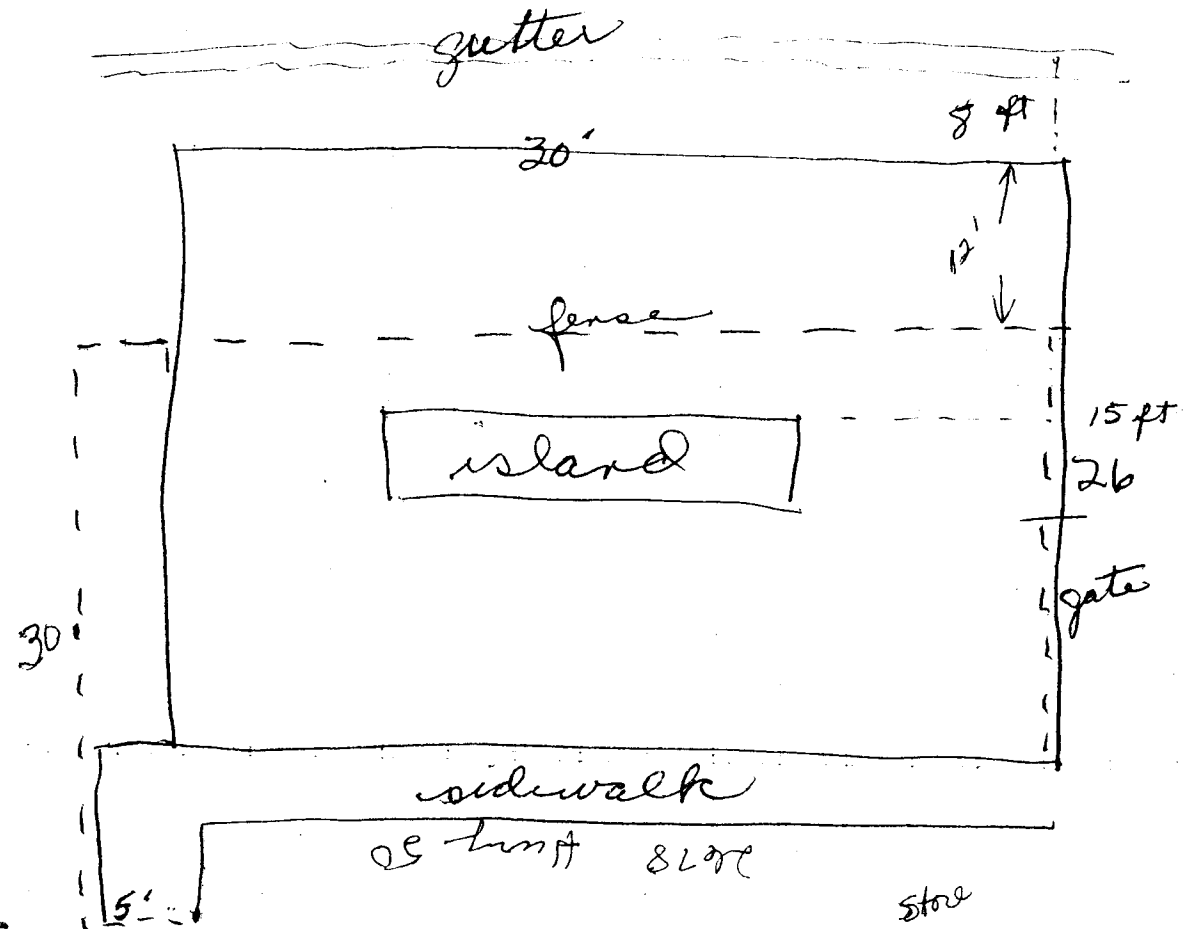 gutter
8 ft
30'
12'
fense
15 ft
island
26
gate
30'
sidewalk
Hwy 50
5'
Store